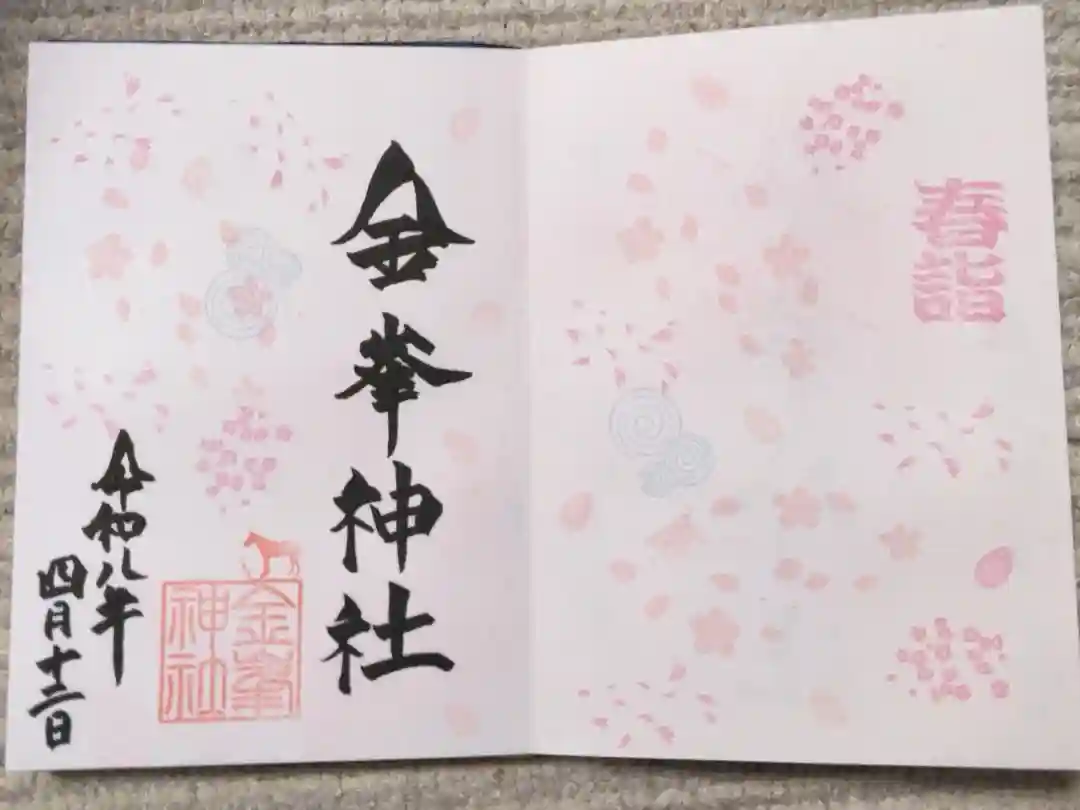 春詣
金峯神社
金峯
神社
令和八年
四月十二日